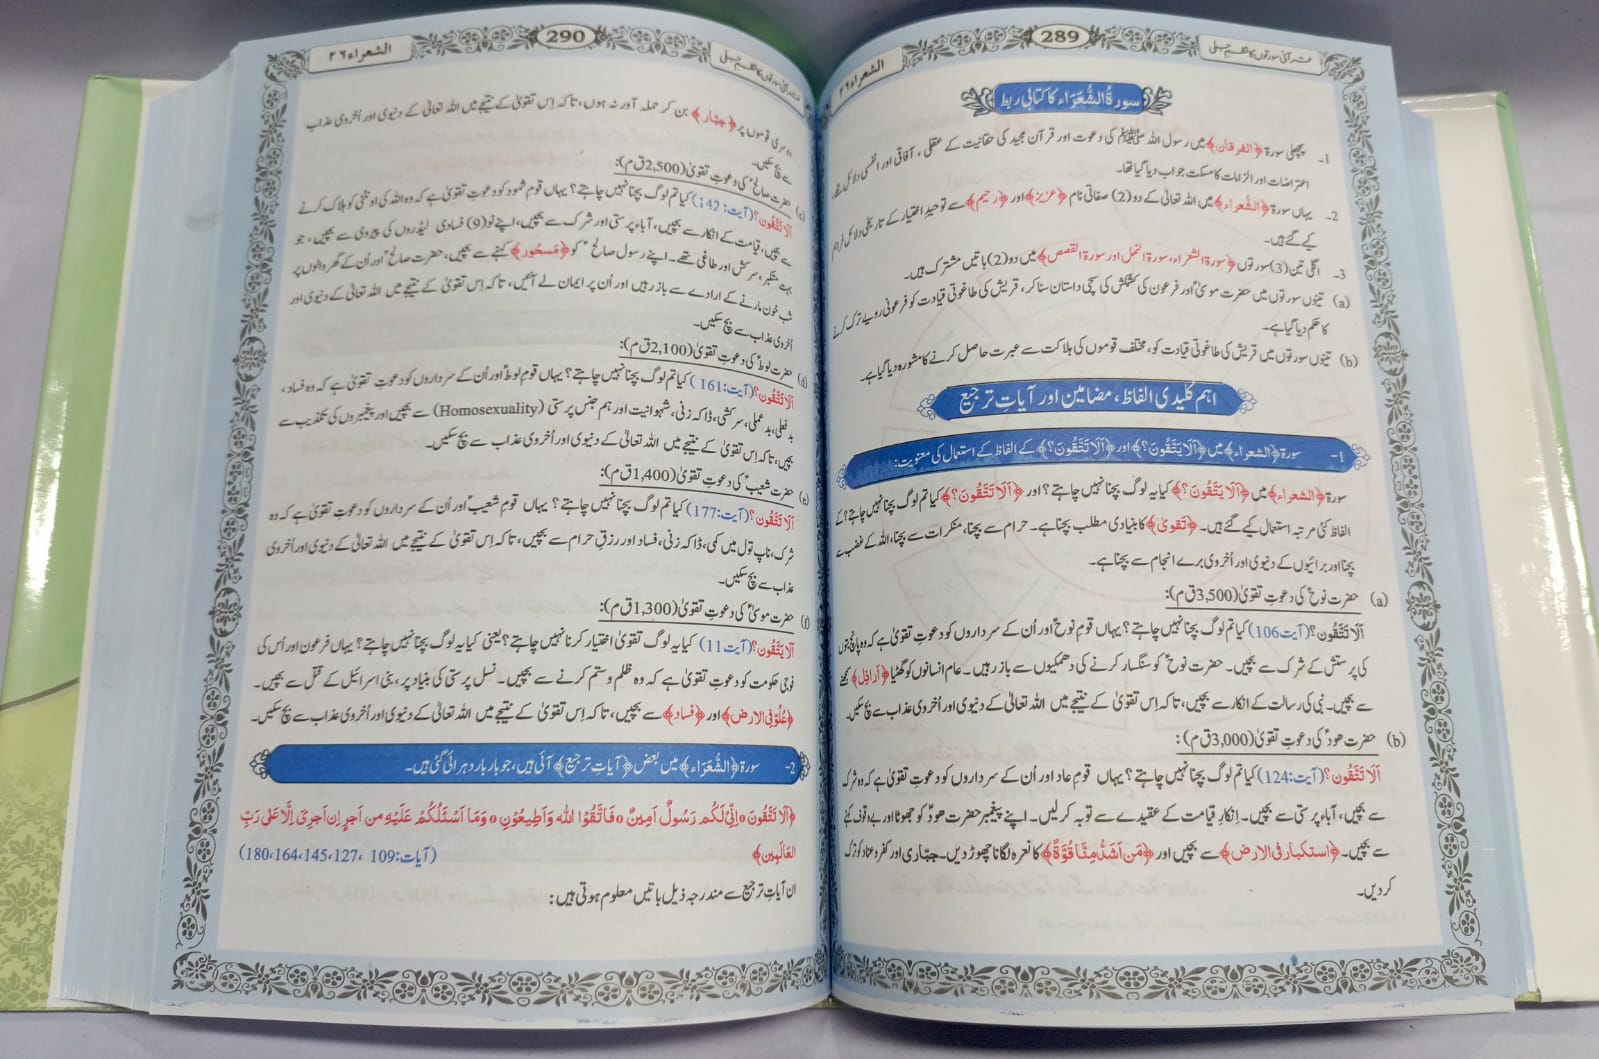 قرآنی سورتوں کا نظمِ جلی
289
الشعراء ۲۶
سورۃُ الشُّعَرَاء کا کتابی ربط
1۔ پچھلی سورۃ ﴿الفرقان﴾ میں رسول اللہ ﷺ کی دعوت اور قرآن مجید کی حقانیت کے عقلی، آفاقی اور انفسی دلائل تھے،
اعتراضات اور الزامات کا مسکت جواب دیا گیا تھا۔
2۔ یہاں سورۃ ﴿الشُّعراء﴾ میں اللہ تعالیٰ کے دو (2) صفاتی نام ﴿عزیز﴾ اور ﴿رحیم﴾ سے توحیدِ اختیار کے تاریخی دلائل فراہم
کیے گئے ہیں۔
3۔ اگلی تین (3) سورتوں ﴿سورۃ الشعراء، سورۃ النمل اور سورۃ القصص﴾ میں دو (2) باتیں مشترک ہیں۔
(a) تینوں سورتوں میں حضرت موسیٰؑ اور فرعون کی کشمکش کی سچی داستان سنا کر، قریش کی طاغوتی قیادت کو فرعونی رویے ترک کرنے
کا حکم دیا گیا ہے۔
(b) تینوں سورتوں میں قریش کی طاغوتی قیادت کو، مختلف قوموں کی ہلاکت سے عبرت حاصل کرنے کا مشورہ دیا گیا ہے۔
اہم کلیدی الفاظ، مضامین اور آیاتِ ترجیع
1- سورۃ ﴿الشعراء﴾ میں ﴿اَلَا یَتَّقُونَ؟﴾ اور ﴿اَلَا تَتَّقُونَ؟﴾ کے الفاظ کے استعمال کی معنویت:
سورۃ ﴿الشعراء﴾ میں ﴿اَلَا یَتَّقُونَ؟﴾ کیا یہ لوگ بچنا نہیں چاہتے؟ اور ﴿اَلَا تَتَّقُونَ؟﴾ کیا تم لوگ بچنا نہیں چاہتے؟ کے
الفاظ کئی مرتبہ استعمال کیے گئے ہیں۔ ﴿تقویٰ﴾ کا بنیادی مطلب بچنا ہے۔ حرام سے بچنا، منکرات سے بچنا، اللہ کے غضب سے
بچنا اور برائیوں کے دنیوی اور اُخروی برے انجام سے بچنا ہے۔
(a) حضرت نوحؑ کی دعوتِ تقویٰ (3,500 ق م):
اَلَا تَتَّقُونَ؟ (آیت:106) کیا تم لوگ بچنا نہیں چاہتے؟ یہاں قومِ نوحؑ اور اُن کے سرداروں کو دعوتِ تقویٰ ہے کہ وہ پانچ بتوں
کی پرستش کے شرک سے بچیں۔ حضرت نوحؑ کو سنگسار کرنے کی دھمکیوں سے باز رہیں۔ عام انسانوں کو گھٹیا ﴿اَراذِل﴾ کہنے
سے بچیں۔ نبی کی رسالت کے انکار سے بچیں، تاکہ اِس تقویٰ کے نتیجے میں اللہ تعالیٰ کے دنیوی اور اُخروی عذاب سے بچ سکیں۔
(b) حضرت ھودؑ کی دعوتِ تقویٰ (3,000 ق م):
اَلَا تَتَّقُونَ؟ (آیت:124) کیا تم لوگ بچنا نہیں چاہتے؟ یہاں قومِ عاد اور اُن کے سرداروں کو دعوتِ تقویٰ ہے کہ وہ شرک
سے بچیں، آباء پرستی سے بچیں۔ اِنکارِ قیامت کے عقیدے سے توبہ کر لیں۔ اپنے پیغمبر حضرت ھودؑ کو جھوٹا اور بے وقوف کہنے
سے بچیں۔ ﴿استکبار فی الارض﴾ سے بچیں اور ﴿مَن اَشَدُّ مِنَّا قُوَّۃً﴾ کا نعرہ لگانا چھوڑ دیں۔ جبّاری اور کفر و عناد کو ترک
کر دیں۔
قرآنی سورتوں کا نظمِ جلی
290
الشعراء ۲۶
دوسری قوموں پر ﴿جبّار﴾ بن کر حملہ آور نہ ہوں، تاکہ اِس تقویٰ کے نتیجے میں اللہ تعالیٰ کے دنیوی اور اُخروی عذاب
سے بچ سکیں۔
(c) حضرت صالحؑ کی دعوتِ تقویٰ (2,500 ق م):
اَلَا تَتَّقُونَ؟ (آیت:142) کیا تم لوگ بچنا نہیں چاہتے؟ یہاں قومِ ثمود کو دعوتِ تقویٰ ہے کہ وہ اللہ کی اونٹنی کو ہلاک کرنے
سے بچیں، قیامت کے انکار سے بچیں، آباء پرستی اور شرک سے بچیں، اپنے نو (9) فسادی لیڈروں کی پیروی سے بچیں، جو
بہت متکبر، سرکش اور طاغی تھے۔ اپنے رسول صالحؑ کو ﴿مَسحُور﴾ کہنے سے بچیں، حضرت صالحؑ اور اُن کے گھر والوں پر
شب خون مارنے کے ارادے سے باز رہیں اور اُن پر ایمان لے آئیں، تاکہ اِس تقویٰ کے نتیجے میں اللہ تعالیٰ کے دنیوی اور
اُخروی عذاب سے بچ سکیں۔
(d) حضرت لوطؑ کی دعوتِ تقویٰ (2,100 ق م):
اَلَا تَتَّقُونَ؟ (آیت:161) کیا تم لوگ بچنا نہیں چاہتے؟ یہاں قومِ لوطؑ اور اُن کے سرداروں کو دعوتِ تقویٰ ہے کہ وہ فساد،
بد فعلی، بد عملی، سرکشی، ڈاکہ زنی، شہوانیت اور ہم جنس پرستی (Homosexuality) سے بچیں اور پیغمبروں کی تکذیب سے
بچیں، تاکہ اِس تقویٰ کے نتیجے میں اللہ تعالیٰ کے دنیوی اور اُخروی عذاب سے بچ سکیں۔
(e) حضرت شعیبؑ کی دعوتِ تقویٰ (1,400 ق م):
اَلَا تَتَّقُونَ؟ (آیت:177) کیا تم لوگ بچنا نہیں چاہتے؟ یہاں قومِ شعیبؑ اور اُن کے سرداروں کو دعوتِ تقویٰ ہے کہ وہ
شرک، ناپ تول میں کمی، ڈاکہ زنی، فساد اور رزقِ حرام سے بچیں، تاکہ اِس تقویٰ کے نتیجے میں اللہ تعالیٰ کے دنیوی اور اُخروی
عذاب سے بچ سکیں۔
(f) حضرت موسیٰؑ کی دعوتِ تقویٰ (1,300 ق م):
اَلَا یَتَّقُونَ؟ (آیت 11) کیا یہ لوگ تقویٰ اختیار کرنا نہیں چاہتے؟ یعنی کیا یہ لوگ بچنا نہیں چاہتے؟ یہاں فرعون اور اُس کی
فوجی حکومت کو دعوتِ تقویٰ ہے کہ وہ ظلم و ستم کرنے سے بچیں۔ نسل پرستی کی بنیاد پر، بنی اسرائیل کے قتل سے بچیں۔
﴿عُلُوّ فِی الارض﴾ اور ﴿فساد﴾ سے بچیں، تاکہ اِس تقویٰ کے نتیجے میں اللہ تعالیٰ کے دنیوی اور اُخروی عذاب سے بچ سکیں۔
2- سورۃ ﴿الشُّعَرَاء﴾ میں بعض ﴿آیاتِ ترجیع﴾ آئی ہیں، جو بار بار دہرائی گئی ہیں۔
﴿اَلَا تَتَّقُونَ ۝ اِنِّی لَکُم رَسُولٌ اَمِینٌ ۝ فَاتَّقُوا اللہَ وَاَطِیعُوْنِ ۝ وَمَا اَسْئَلُکُمْ عَلَیْہِ مِن اَجرٍ اِن اَجرِیَ اِلَّا عَلٰی رَبِّ
العَالَمِین﴾ (آیات:109، 127، 145، 164، 180)
ان آیاتِ ترجیع سے مندرجہ ذیل باتیں معلوم ہوتی ہیں: